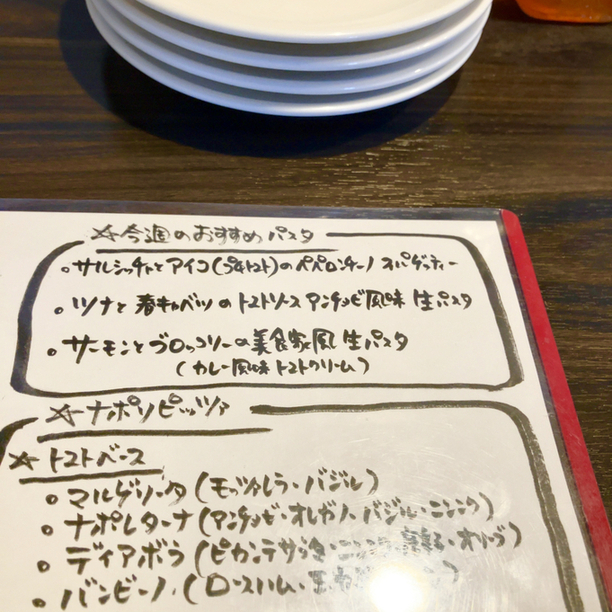 ☆今週のおすすめパスタ
○サルシッチャとアイコ(プチトマト)のペペロンチーノ スパゲッティー
○ツナと春キャベツのトマトソース アンチョビ風味 生パスタ
○サーモンとブロッコリーの美食家風 生パスタ
(カレー風味 トマトクリーム)
☆ナポリピッツァ
☆トマトベース
○マルゲリータ(モッツァレラ・バジル)
○ナポレターナ(アンチョビ・オレガノ・バジル・ニンニク)
○ディアボラ(ピカンテサラミ・オリーブ)
○バンビーノ(ロースハム・